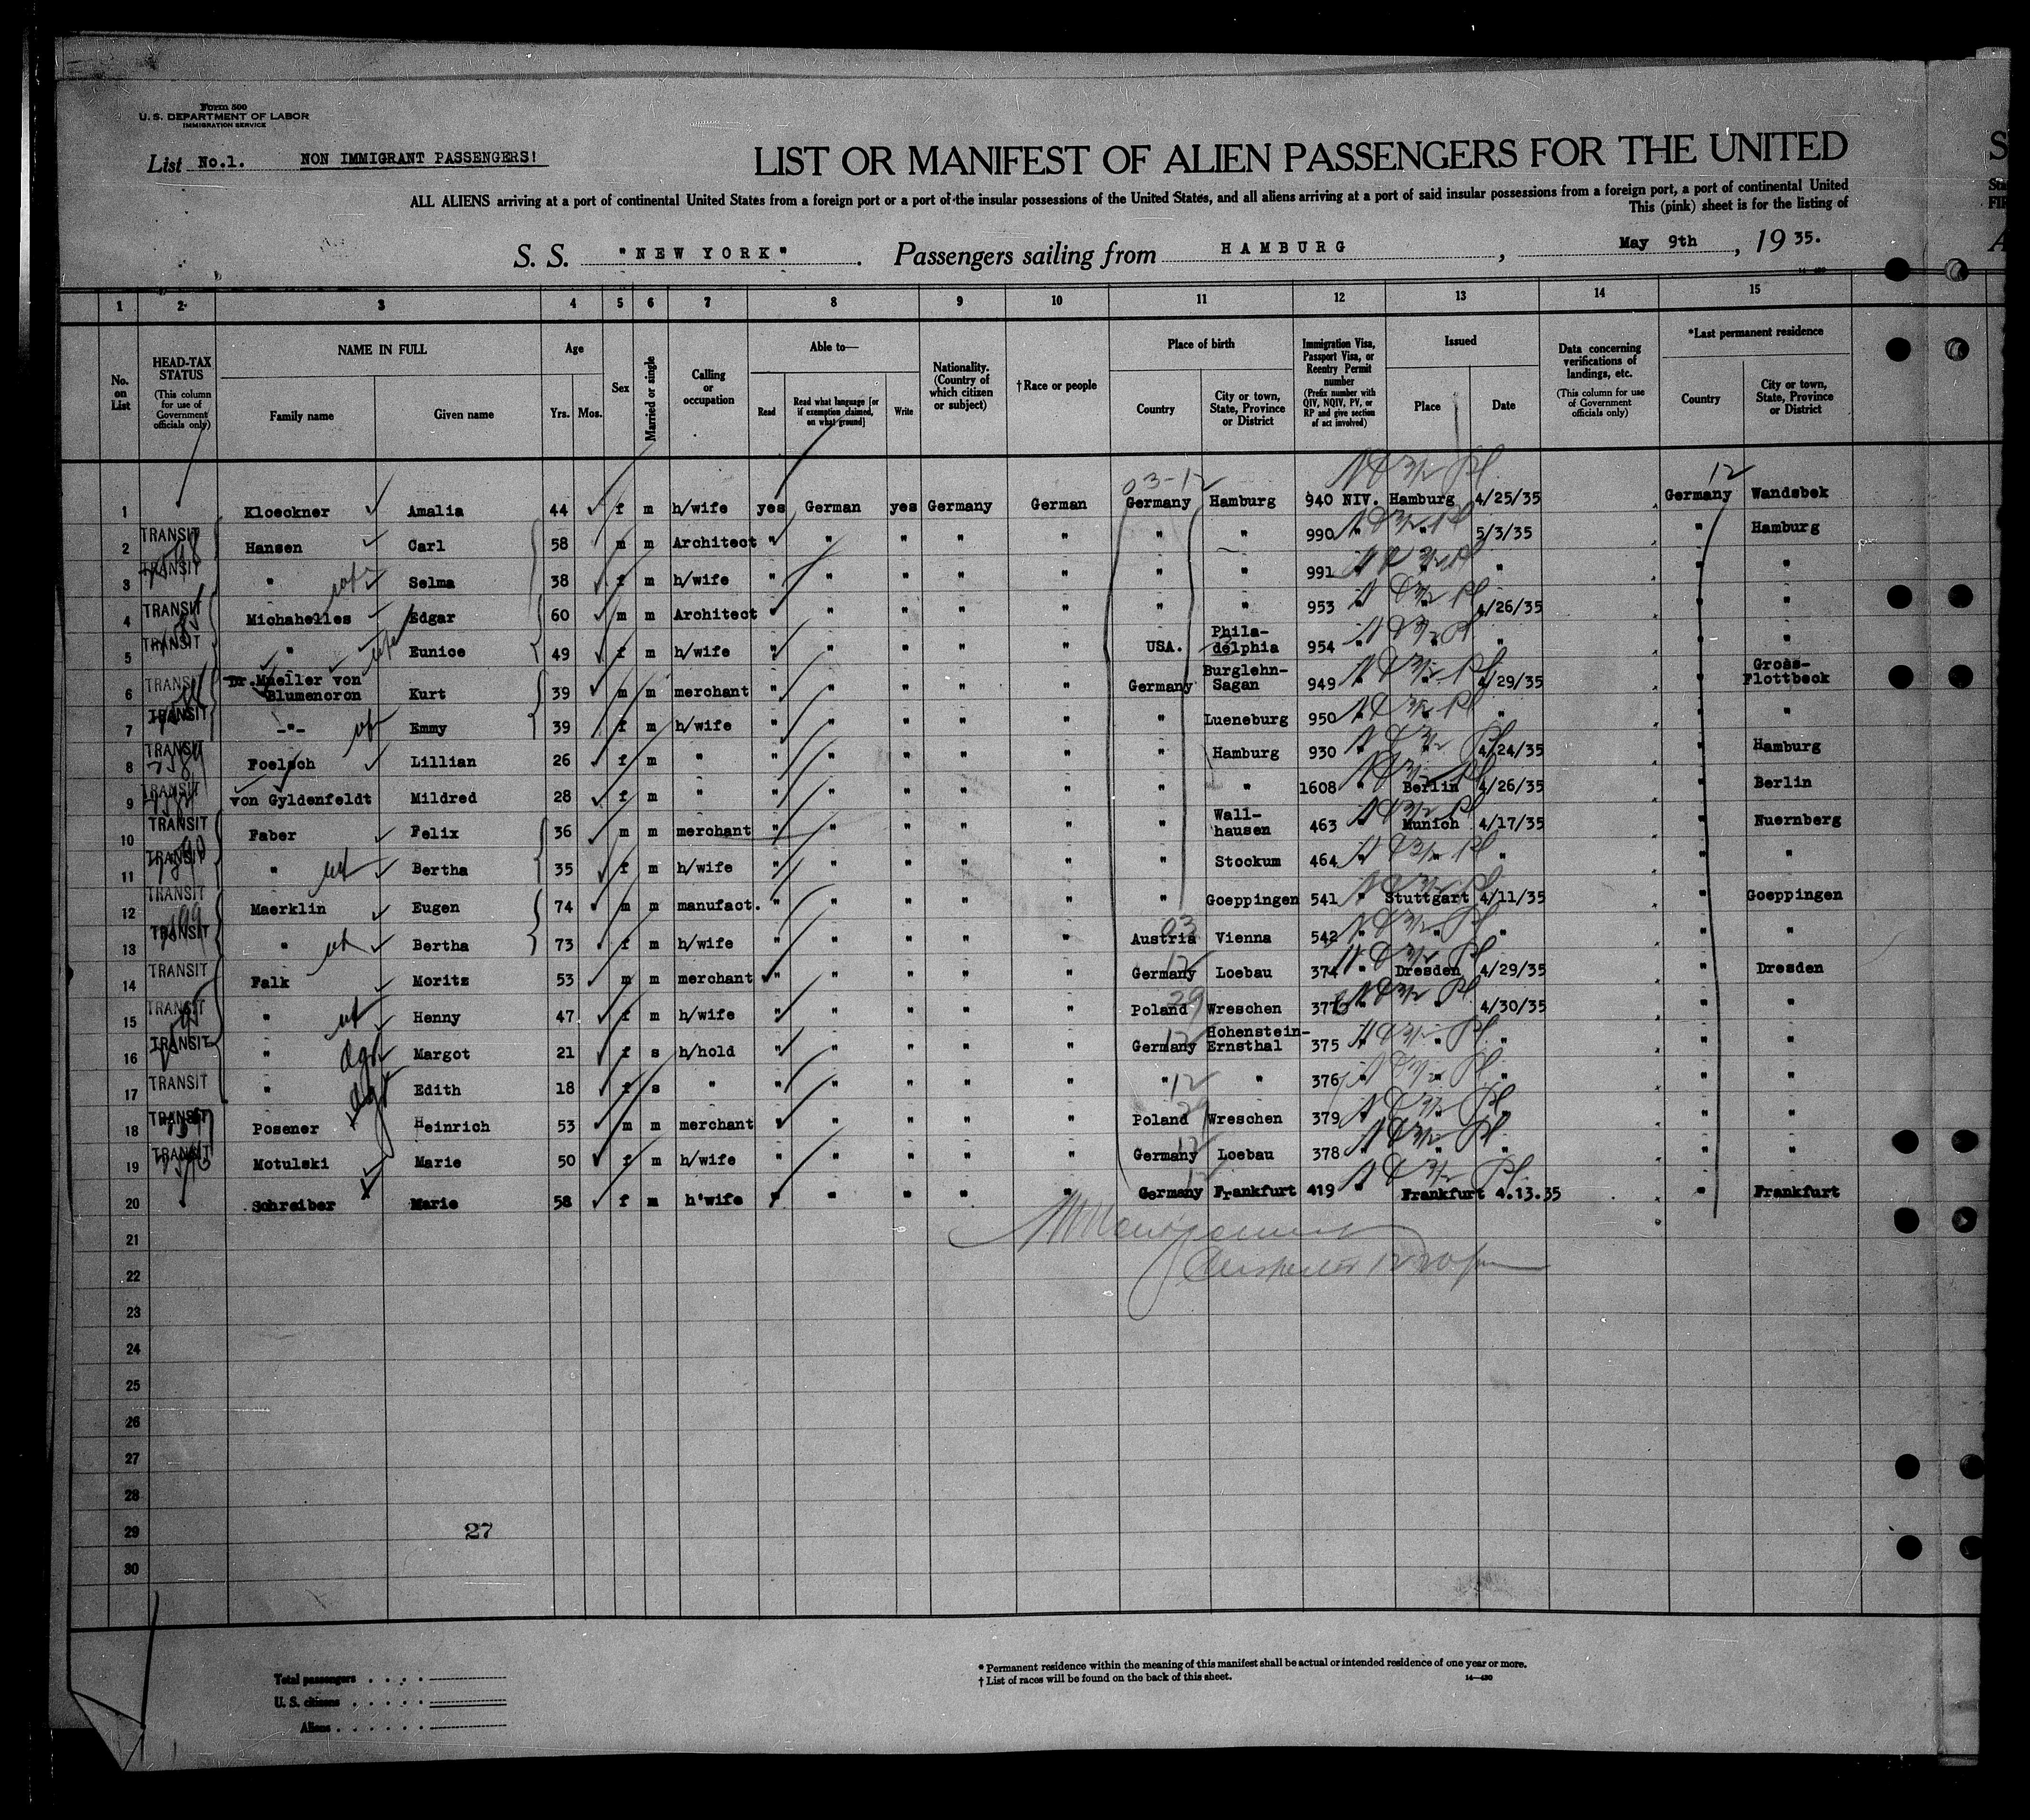 Form 500
U. S. DEPARTMENT OF LABOR
IMMIGRATION SERVICE
List No.1. NON IMMIGRANT PASSENGERS!
LIST OR MANIFEST OF ALIEN PASSENGERS FOR THE UNITED
ALL ALIENS arriving at a port of continental United States from a foreign port or a port of the insular possessions of the United States, and all aliens arriving at a port of said insular possessions from a foreign port, a port of continental United
This (pink) sheet is for the listing of
S. S. "NEW YORK". Passengers sailing from HAMBURG, May 9th, 1935.
1 2 3 4 5 6 7 8 9 10 11 12 13 14 15
No. on List
HEAD-TAX STATUS (This column for use of Government officials only)
NAME IN FULL
Family name Given name
Age
Yrs. Mos.
Sex
Married or single
Calling or occupation
Able to—
Read Read what language [or if exemption claimed, on what ground] Write
Nationality. (Country of which citizen or subject)
† Race or people
Place of birth
Country City or town, State, Province or District
Immigration Visa, Passport Visa, or Reentry Permit number (Prefix number with QIV, NQIV, PV, or RP and give section of act involved)
Issued
Place Date
Data concerning verifications of landings, etc. (This column for use of Government officials only)
*Last permanent residence
Country City or town, State, Province or District
03-12 12
1 Kloeckner Amalia 44 f m h/wife yes German yes Germany German Germany Hamburg 940 NIV. Hamburg 4/25/35 Germany Wandsbek
2 TRANSIT Hansen Carl 58 m m Architect " " " " " " " 990 " " 5/3/35 " Hamburg
3 TRANSIT " Selma 38 f m h/wife " " " " " " " 991 " " " " "
4 TRANSIT Michahelles Edgar 60 m m Architect " " " " " " " 953 " " 4/26/35 " "
5 TRANSIT " Eunice 49 f m h/wife " " " " " USA. Phila-delphia 954 " " " " "
6 TRANSIT Dr. Mueller von Blumencron Kurt 39 m m merchant " " " " " Germany Burglehn-Sagan 949 " " 4/29/35 " Gross-Flottbeck
7 TRANSIT -"- Emmy 39 f m h/wife " " " " " " Lueneburg 950 " " " " "
8 TRANSIT Foelsch Lillian 26 f m " " " " " " " Hamburg 930 " " 4/24/35 " Hamburg
9 TRANSIT von Gyldenfeldt Mildred 28 f m " " " " " " " " 1608 " Berlin 4/26/35 " Berlin
10 TRANSIT Faber Felix 36 m m merchant " " " " " " Wall-hausen 463 " Munich 4/17/35 " Nuernberg
11 TRANSIT " Bertha 35 f m h/wife " " " " " " Stockum 464 " " " " "
12 TRANSIT Maerklin Eugen 74 m m manufact. " " " " " " Goeppingen 541 " Stuttgart 4/11/35 " Goeppingen
13 TRANSIT " Bertha 73 f m h/wife " " " " " Austria Vienna 542 " " " " "
14 TRANSIT Falk Moritz 53 m m merchant " " " " " Germany Loebau 374 " Dresden 4/29/35 " Dresden
15 TRANSIT " Henny 47 f m h/wife " " " " " Poland Wreschen 377 " " 4/30/35 " "
16 TRANSIT " Margot 21 f s h/hold " " " " " Germany Hohenstein-Ernsthal 375 " " " " "
17 TRANSIT " Edith 18 f s " " " " " " " " 376 " " " " "
18 TRANSIT Posener Heinrich 53 m m merchant " " " " " Poland Wreschen 379 " " " " "
19 TRANSIT Motulski Marie 50 f m h/wife " " " " " Germany Loebau 378 " " " " "
20 Schreiber Marie 58 f m h'wife " " " " " Germany Frankfurt 419 " Frankfurt 4.13.35 " Frankfurt
21
22
23
24
25
26
27
28
29 27
30
Total passengers
U. S. citizens
Aliens
* Permanent residence within the meaning of this manifest shall be actual or intended residence of one year or more.
† List of races will be found on the back of this sheet. 14—430